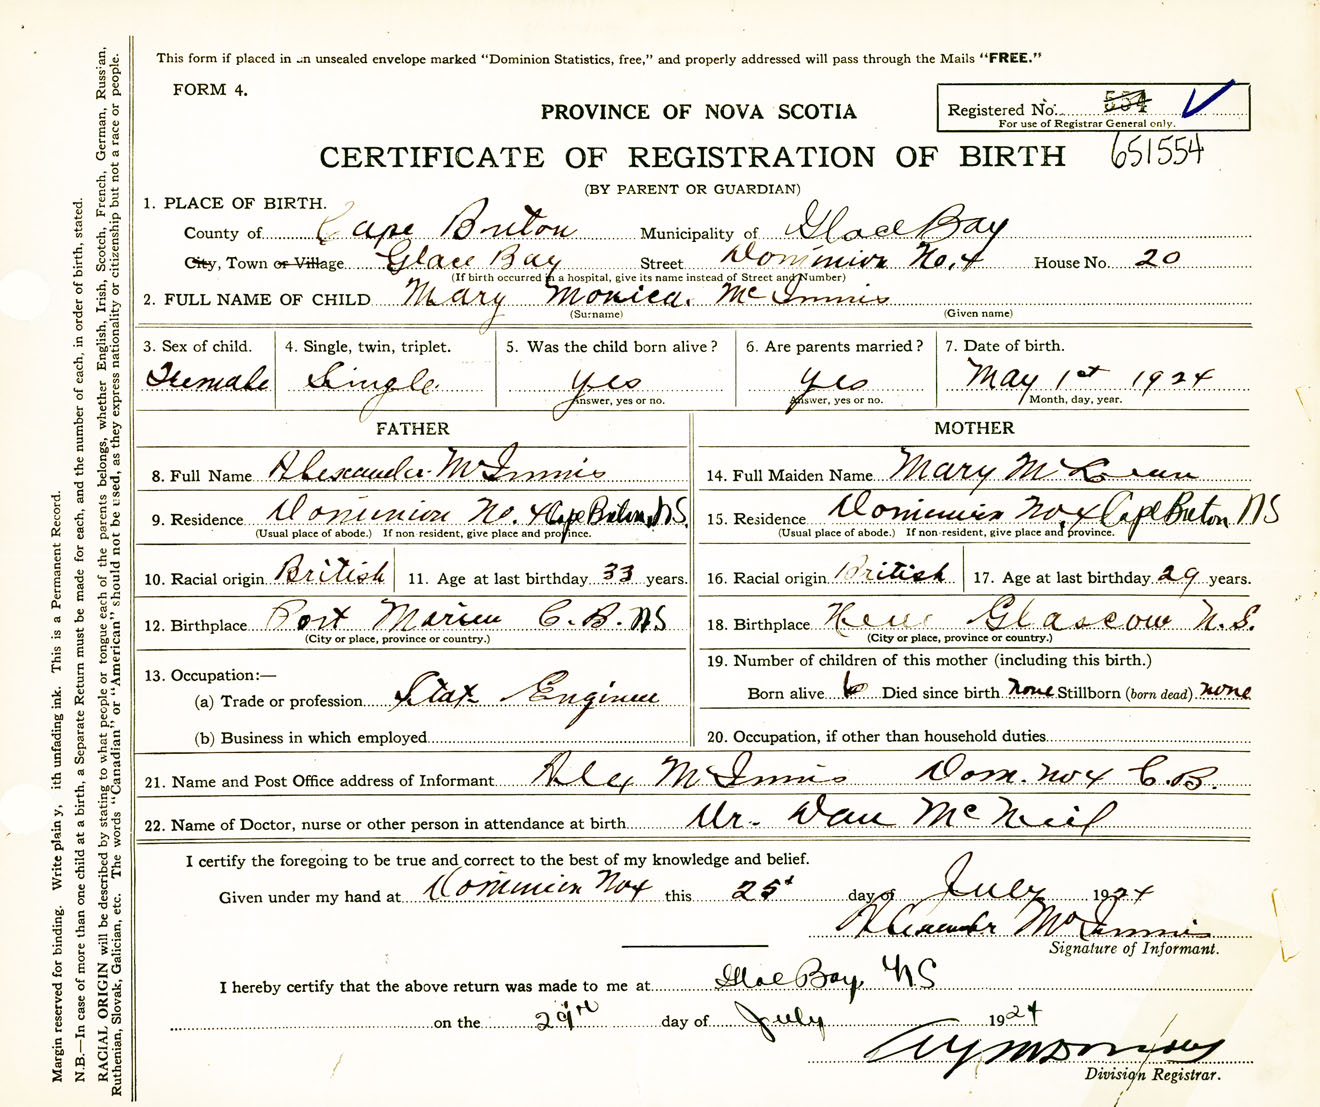 This form if placed in an unsealed envelope marked "Dominion Statistics, free," and properly addressed will pass through the Mails "FREE."
FORM 4.
PROVINCE OF NOVA SCOTIA
Registered No. 554
For use of Registrar General only.
CERTIFICATE OF REGISTRATION OF BIRTH 651554
(BY PARENT OR GUARDIAN)
1. PLACE OF BIRTH.
County of Cape Breton Municipality of Glace Bay
City, Town or Village Glace Bay Street Dominion No. 4 House No. 20
(If birth occurred in a hospital, give its name instead of Street and Number)
2. FULL NAME OF CHILD Mary Monica. McInnis
(Surname) (Given name)
3. Sex of child. 4. Single, twin, triplet. 5. Was the child born alive? 6. Are parents married? 7. Date of birth.
Female Single yes yes May 1st 1924
Answer, yes or no. Answer, yes or no. Month, day, year.
FATHER MOTHER
8. Full Name Alexander McInnis 14. Full Maiden Name Mary McLean
9. Residence Dominion No. 4 Cape Breton, NS. 15. Residence Dominion No. 4 Cape Breton NS
(Usual place of abode.) If non-resident, give place and province. (Usual place of abode.) If non-resident, give place and province.
10. Racial origin British 11. Age at last birthday 33 years. 16. Racial origin British 17. Age at last birthday 29 years.
12. Birthplace Port Morien C. B. NS 18. Birthplace New Glascow N. S.
(City or place, province or country.) (City or place, province or country.)
13. Occupation:— 19. Number of children of this mother (including this birth.)
(a) Trade or profession Stat Engineer Born alive 6 Died since birth none Stillborn (born dead) none
(b) Business in which employed 20. Occupation, if other than household duties
21. Name and Post Office address of Informant Alex McInnis Dom. No 4 C. B.
22. Name of Doctor, nurse or other person in attendance at birth Dr. Dan McNeil
I certify the foregoing to be true and correct to the best of my knowledge and belief.
Given under my hand at Dominion No 4 this 25t day of July 1924
Alexander McInnis
Signature of Informant.
I hereby certify that the above return was made to me at Glace Bay NS
on the 29th day of July 1924
Division Registrar.
Margin reserved for binding. Write plainy, ith unfading ink. This is a Permanent Record.
N.B.—In case of more than one child at a birth, a Separate Return must be made for each, and the number of each, in order of birth, stated.
RACIAL ORIGIN will be described by stating to what people or tongue each of the parents belongs, whether English, Irish, Scotch, French, German, Russian,
Ruthenian, Slovak, Galician, etc. The words "Canadian" or "American" should not be used, as they express nationality or citizenship but not a race or people.